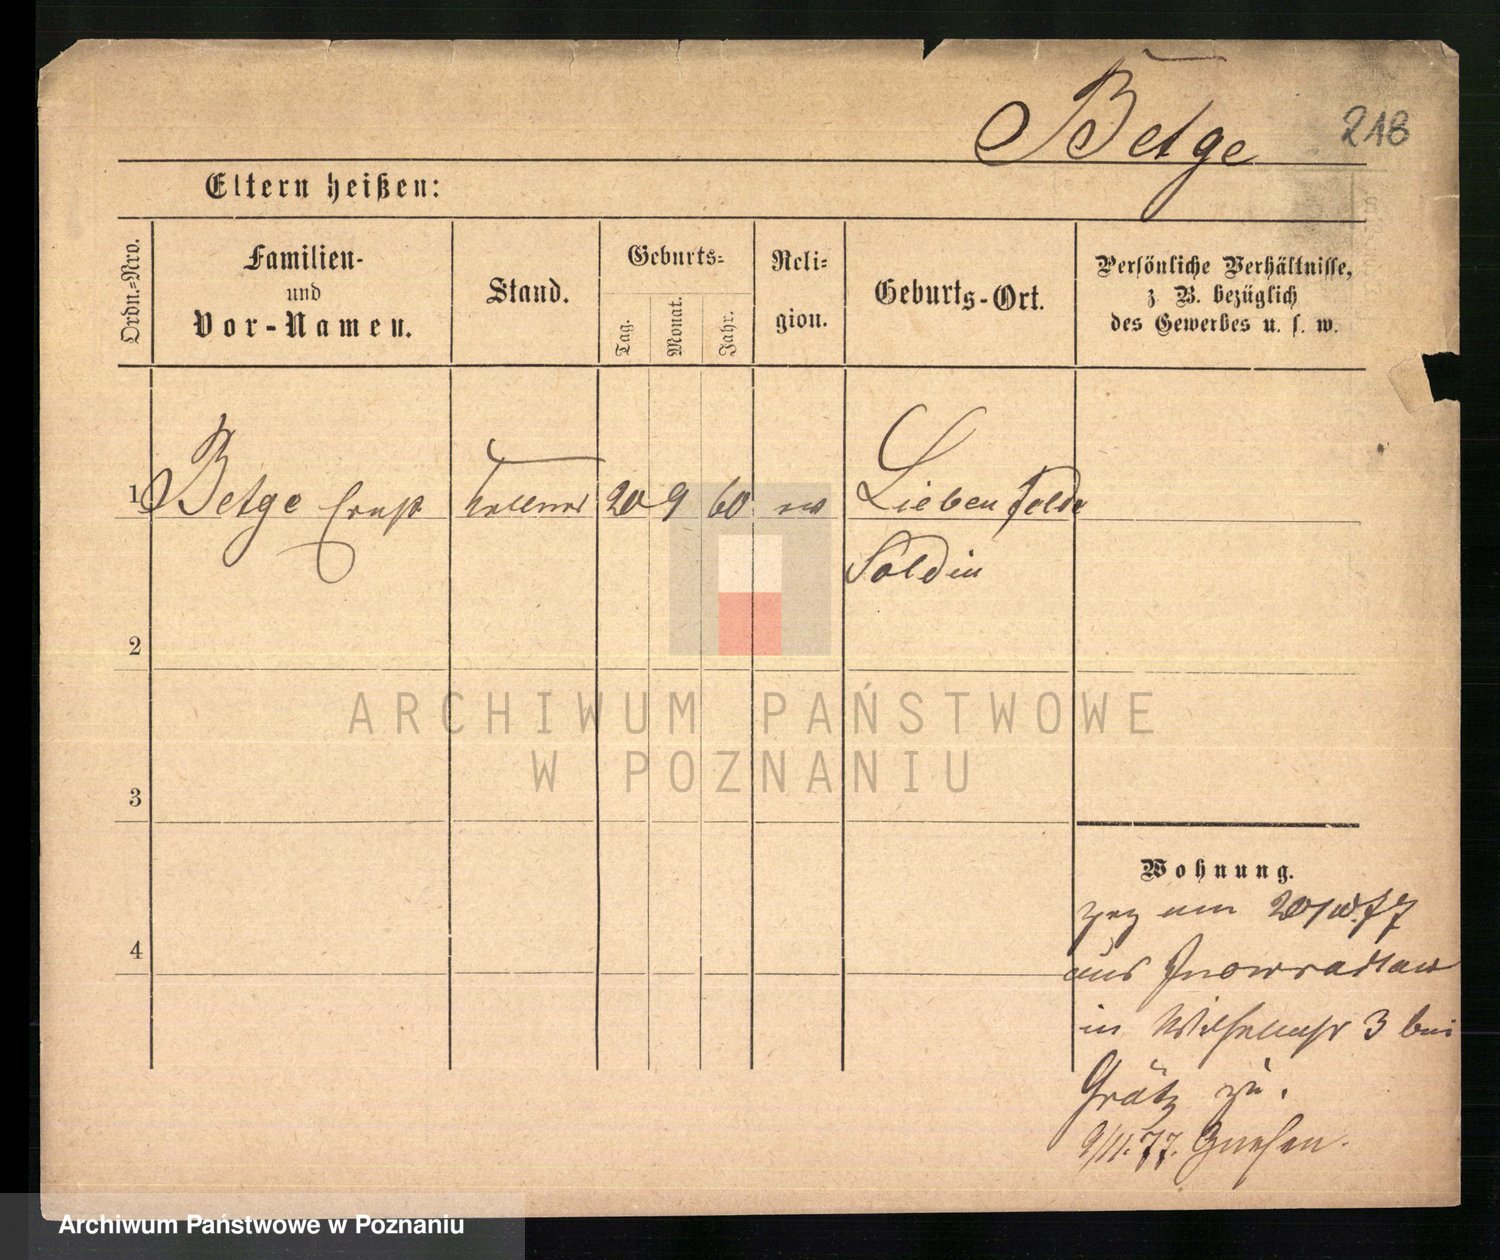 Betge
218
Eltern heißen:
Ordn.-Nro.
Familien-
und
Vor-Namen.
Stand.
Geburts-
Tag.
Monat.
Jahr.
Reli-
gion.
Geburts-Ort.
Persönliche Verhältnisse,
z B. bezüglich
des Gewerbes u. s. w.
1 Betge Ernst Kellner 20 9 60 ev Liebenfelde
Soldin
2
3
4
Wohnung.
zog am 20/10.77
aus Inowradlaw
in Wilhelmstr 3 bei
Grätz zu.
9/11.77. Gnesen.
ARCHIWUM PAŃSTWOWE
W POZNANIU
Archiwum Państwowe w Poznaniu